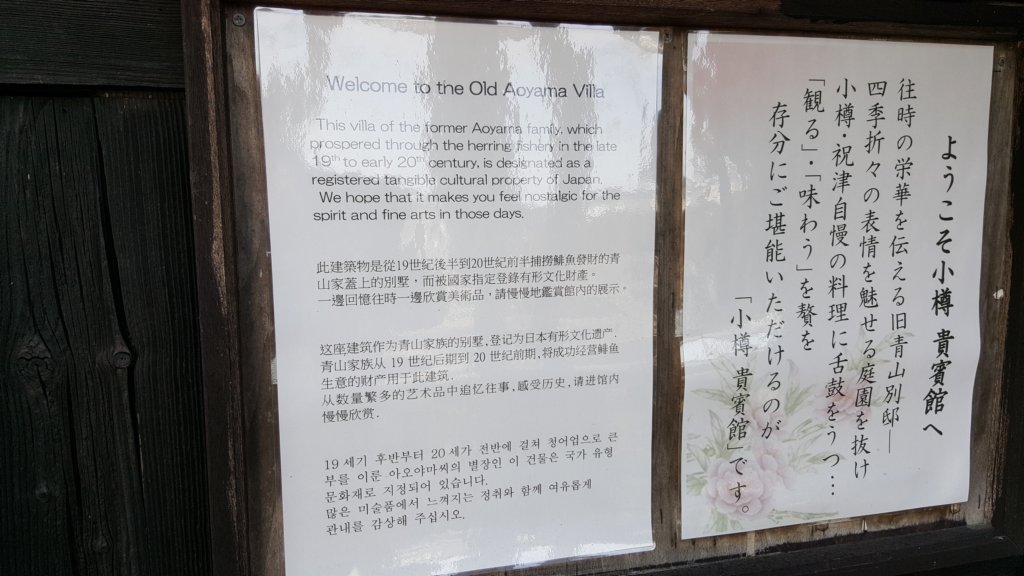 Welcome to the Old Aoyama Villa
This villa of the former Aoyama family, which
prospered through the herring fishery in the late
19th to early 20th century, is designated as a
registered tangible cultural property of Japan.
We hope that it makes you feel nostalgic for the
spirit and fine arts in those days.
此建築物是從19世紀後半到20世紀前半捕撈鯡魚發財的青
山家蓋上的別墅，而被國家指定登錄有形文化財産。
一邊回憶往時一邊欣賞美術品，請慢慢地鑑賞館內的展示。
这座建筑作为青山家族的别墅,登记为日本有形文化遗产.
青山家族从 19 世纪后期到 20 世纪前期,将成功经营鲱鱼
生意的财产用于此建筑.
从数量繁多的艺术品中追忆往事,感受历史,请进馆内
慢慢欣赏.
19세기 후반부터 20세가 전반에 걸쳐 청어업으로 큰
부를 이룬 아오야마씨의 별장인 이 건물은 국가 유형
문화재로 지정되어 있습니다.
많은 미술품에서 느껴지는 정취와 함께 여유롭게
관내를 감상해 주십시오.
ようこそ小樽 貴賓館へ
往時の栄華を伝える旧青山別邸―
四季折々の表情を魅せる庭園を抜け
小樽・祝津自慢の料理に舌鼓をうつ…
「観る」・「味わう」を贅を
存分にご堪能いただけるのが
「小樽 貴賓館」です。